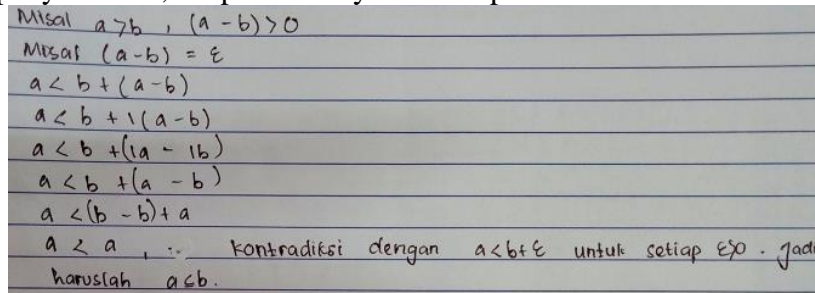 Misal a>b , (a-b)>0
Misal (a-b) = ε
a < b + (a-b)
a < b + 1(a-b)
a < b +(1a - 1b)
a < b +(a - b)
a <(b - b)+ a
a < a , ∴ kontradiksi dengan a<b+ε untuk setiap ε>0 . jadi
haruslah a≤b.